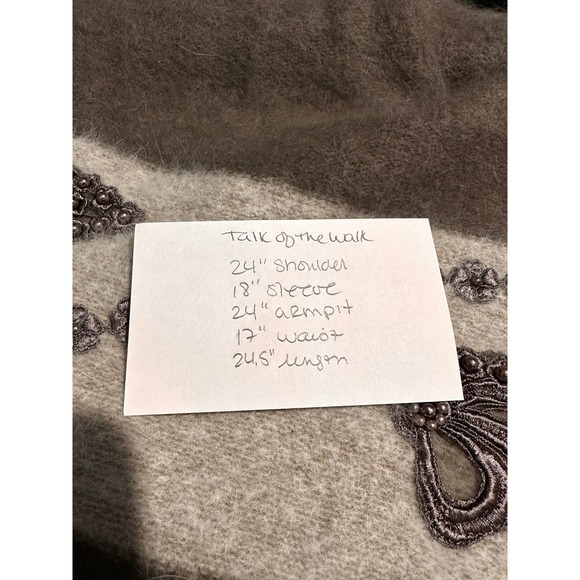 Talk of the Walk
24" Shoulder
18" sleeve
24" armpit
17" waist
24.5" length